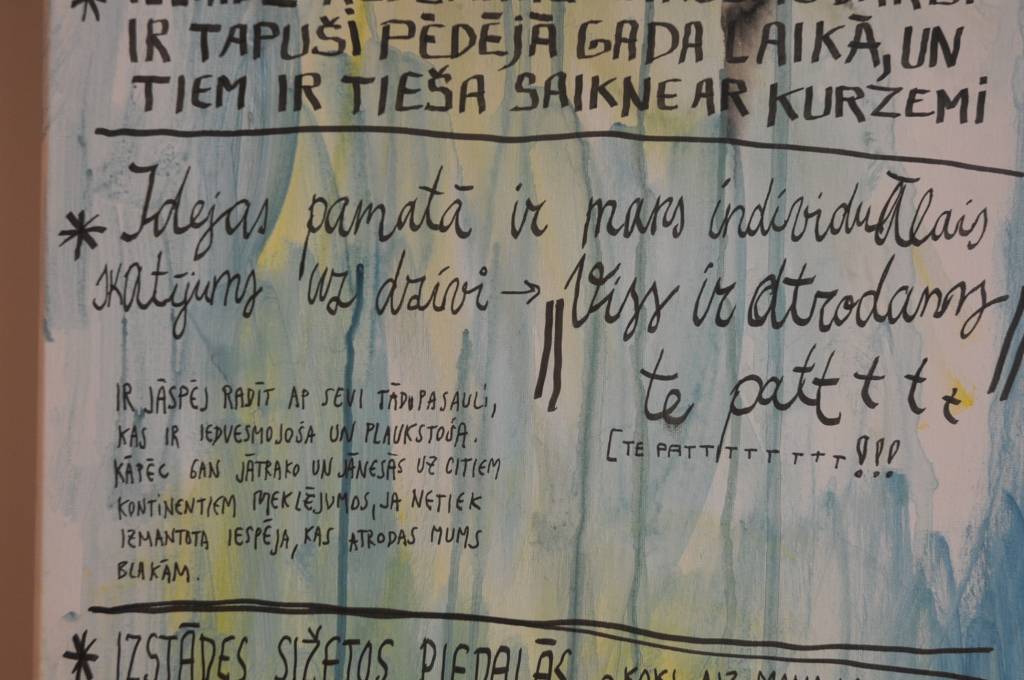 IR TAPUŠI PĒDĒJĀ GADA LAIKĀ, UN
TIEM IR TIEŠA SAIKNE AR KURZEMI
* Idejas pamatā ir mans individuĀlais
skatījums uz dzīvi → "Viss ir atrodams
te patt t t t"
[TE PATTTTTT T T T !!!
IR JĀSPĒJ RADĪT AP SEVI TĀDU PASAULI,
KAS IR IEDVESMOJOŠA UN PLAUKSTOŠA.
KĀPĒC GAN JĀTRAKO UN JĀNESĀS UZ CITIEM
KONTINENTIEM MEKLĒJUMOS, JA NETIEK
IZMANTOTA IESPĒJA, KAS ATRODAS MUMS
BLAKĀM.
* IZSTĀDES SIŽETOS PIEDALĀS